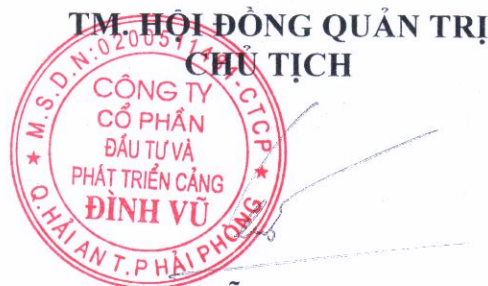 TM. HỘI ĐỒNG QUẢN TRỊ
CHỦ TỊCH
M.S.D.N:0200511481-CTCP
CÔNG TY
CỔ PHẦN
ĐẦU TƯ VÀ
PHÁT TRIỂN CẢNG
ĐÌNH VŨ
Q.HẢI AN T.P HẢI PHÒNG